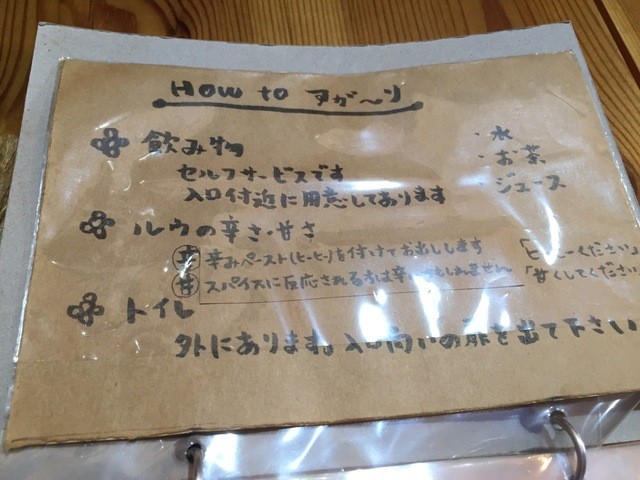 How to すが〜り
飲み物
・水
セルフサービスです
・お茶
入口付近に用意しております
・ジュース
ルウの辛さ・甘さ
辛 辛みペースト(ヒーヒー)を付けてお出しします 「ヒーヒーください」
甘 スパイスに反応される方は辛いかもしれません 「甘くしてください
トイレ
外にあります。入口向いの扉を出て下さい